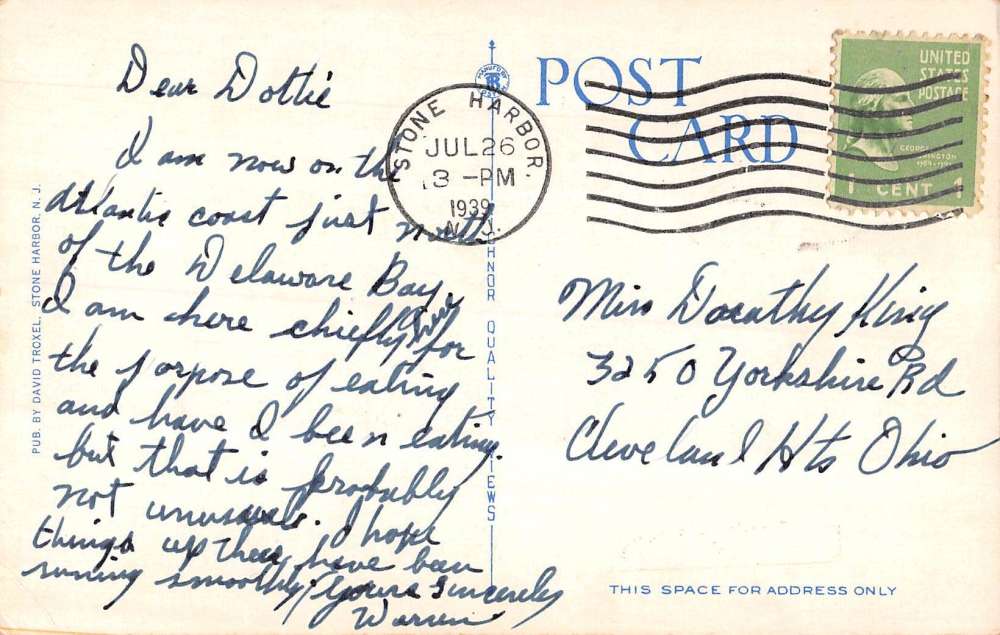 Dear Dottie
I am now on the
Atlantic coast just north
of the Delaware Bay.
I am here chiefly for
the porpose of eating
and have I been eating.
but that is probably
not unusual. I hope
things up there have been
runing smoothly. Yours Sincerely
Warren
PUB. BY DAVID TROXEL, STONE HARBOR, N. J.
STONE HARBOR.
JUL 26
3 - PM
1939
N. J.
TICHNOR QUALITY VIEWS
POST
CARD
UNITED
STATES
POSTAGE
GEORGE
WASHINGTON
1 CENT 1
Miss Dorothy King
3250 Yorkshire Rd
Cleveland Hts Ohio
THIS SPACE FOR ADDRESS ONLY